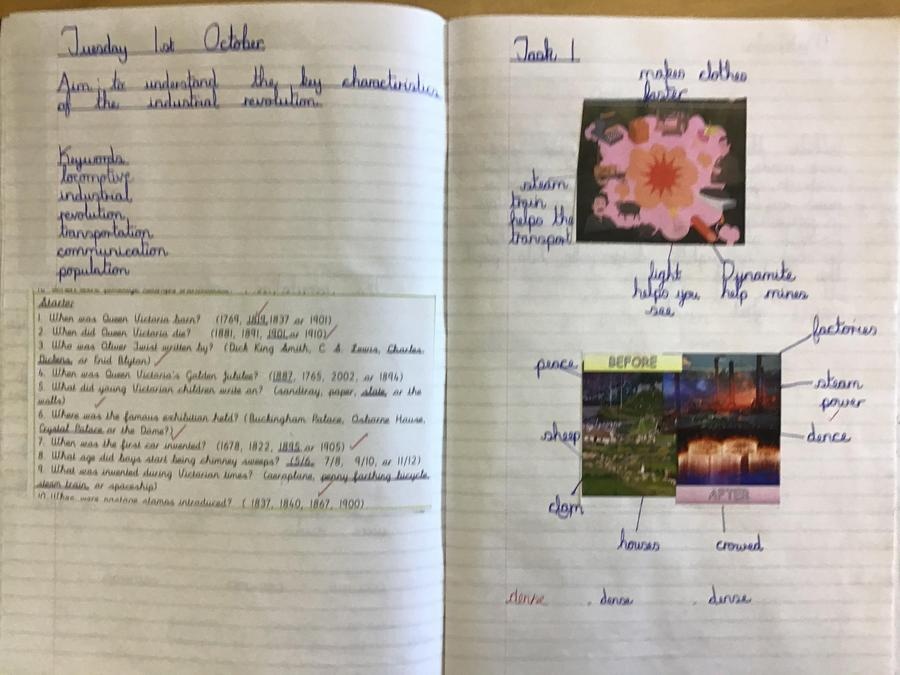 Tuesday 1st October
Aim: to understand the key characteristics
of the industrial revolution.
Keywords
locomotive
industrial
revolution
transportation
communication
population
Starter
1. When was Queen Victoria born? (1769, 1819, 1837 or 1901)
2. When did Queen Victoria die? (1881, 1891, 1901 or 1910)
3. Who was Oliver Twist written by? (Dick King Smith, C. S. Lewis, Charles
Dickens, or Enid Blyton)
4. When was Queen Victoria's Golden Jubilee? (1887, 1765, 2002, or 1894)
5. What did young Victorian children write on? (sandtray, paper, slate, or the
walls)
6. Where was the famous exhibition held? (Buckingham Palace, Osborne House,
Crystal Palace or the Dome?)
7. When was the first car invented? (1678, 1822, 1895 or 1905)
8. What age did boys start being chimney sweeps? (5/6, 7/8, 9/10, or 11/12)
9. What was invented during Victorian times? (aeroplane, penny farthing bicycle,
steam train, or spaceship)
10. When were postage stamps introduced? (1837, 1840, 1867, 1900)
Task 1
makes clothes
faster
steam
train
helps the
transport
light
helps you
see
Dynamite
help mines
factories
peace
BEFORE
steam
power
sheep
dence
clam
AFTER
houses
crowed
dense
dense
dense